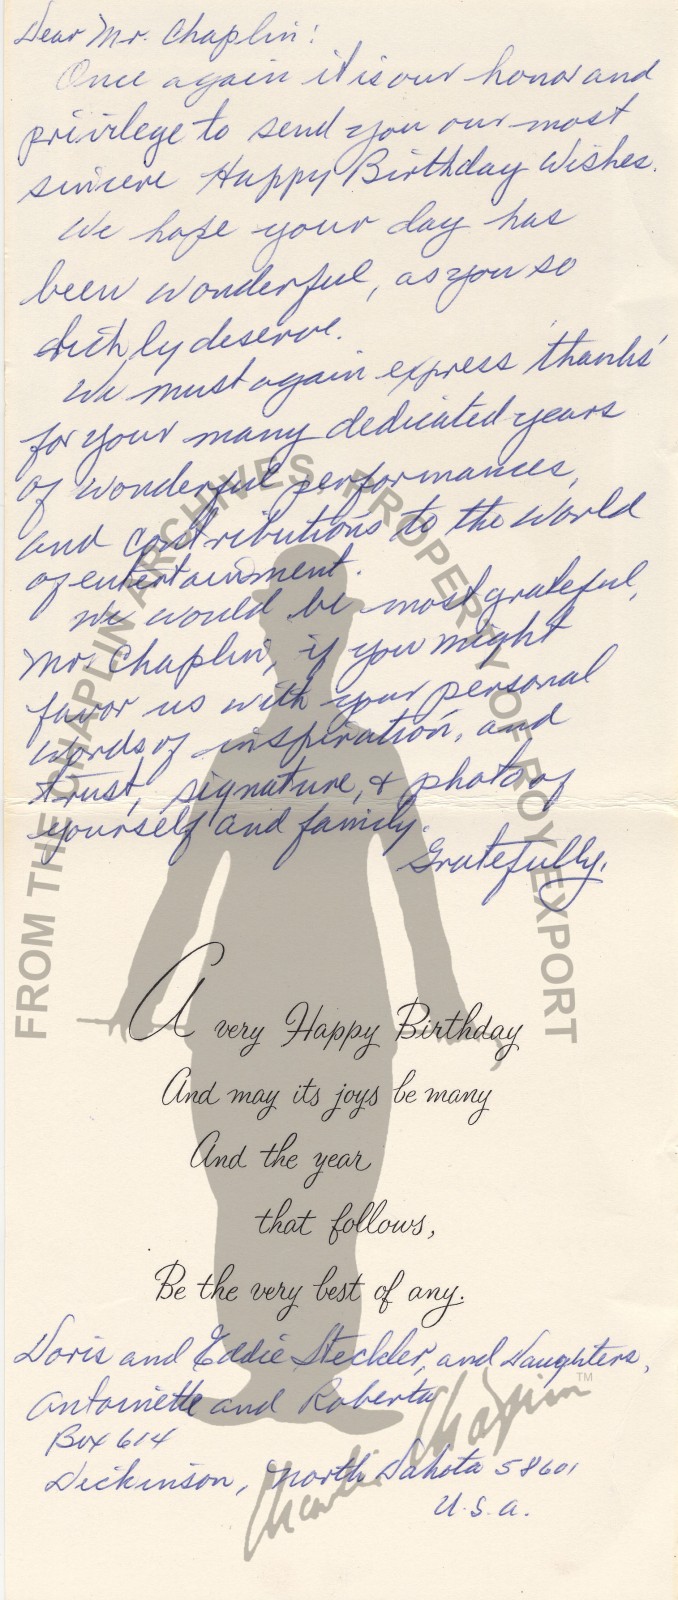 Dear Mr. Chaplin:
Once again it is our honor and
privilege to send you our most
sincere Happy Birthday Wishes.
We hope your day has
been wonderful, as you so
richly deserve.
We must again express 'thanks'
for your many dedicated years
of wonderful performances,
and contributions to the world
of entertainment.
We would be most grateful,
Mr. Chaplin, if you might
favor us with your personal
words of inspiration, and
trust, signature, & photo of
yourself and family.
Gratefully,
A very Happy Birthday
And may its joys be many
And the year
that follows,
Be the very best of any.
Doris and Eddie Steckler, and Daughters,
Antoinette and Roberta
Box 614
Dickinson, North Dakota 58601
U.S.A.
FROM THE CHAPLIN ARCHIVES PROPERTY OF ROY EXPORT
Charlie Chaplin TM